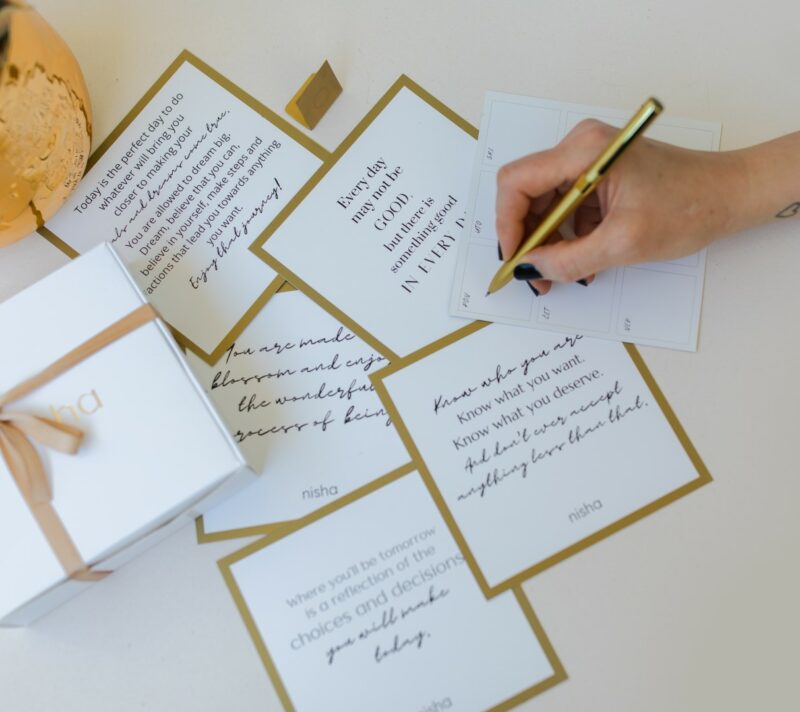 Today is the perfect day to do
whatever will bring you
closer to making your
and dreams come true.
You are allowed to dream big.
Dream, believe that you can,
believe in yourself, make steps and
actions that lead you towards anything
you want.
Enjoy that journey!
Every day
may not be
GOOD.
but there is
something good
IN EVERY
You are made
blossom and
the wonderful
of being
nisha
Know who you are
Know what you want.
Know what you deserve.
And don't ever accept
anything less than that.
nisha
Where you'll be tomorrow
is a reflection of the
choices and decisions
you will make
today.
nisha